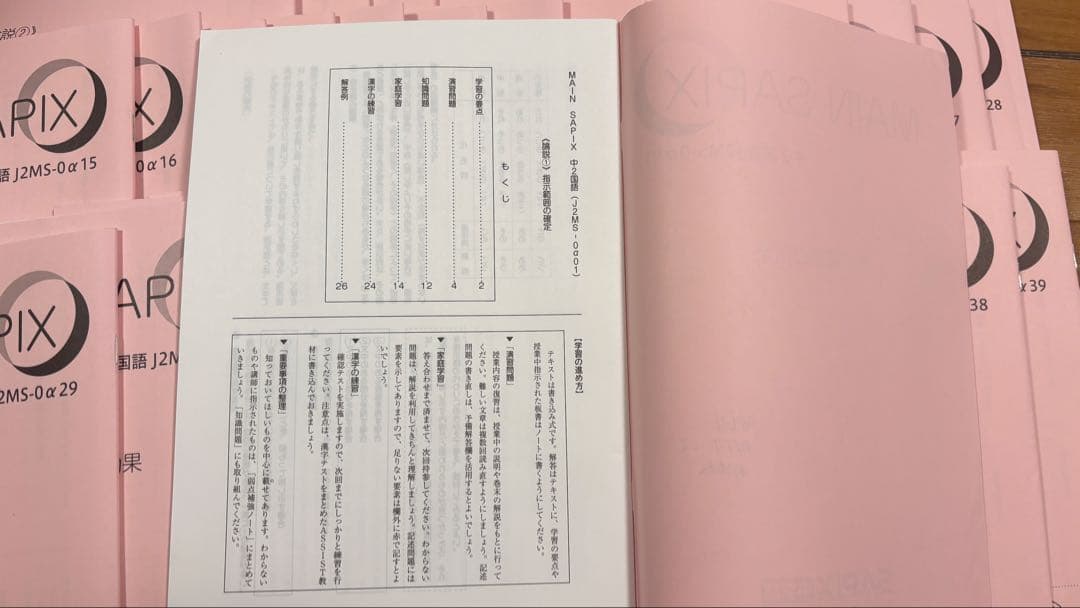 MAIN SAPIX 中2国語(J2MS-0α01)
《論説①》指示範囲の確定
もくじ
学習の要点……2
演習問題……4
知識問題……12
家庭学習……14
漢字の練習……24
解答例……26
【学習の進め方】
テキストは書き込み式です。解答はテキストに、学習の要点や
授業中指示された板書はノートに書くようにしてください。
▼「演習問題」
授業内容の復習は、授業中の説明や巻末の解説をもとに行って
ください。難しい文章は複数回読み直すようにしましょう。記述
問題の書き直しは、予備解答欄を活用するとよいでしょう。
▼「家庭学習」
答え合わせまで済ませて、次回持参してください。わからない
問題は、解説を利用してきちんと理解しましょう。記述問題には
要素を示してありますので、足りない要素は欄外に赤で記すとよ
いでしょう。
▼「漢字の練習」
確認テストを実施しますので、次回までにしっかりと練習を行
ってください。注意点は、漢字テストをまとめたASSIST教
材に書き込んでおきましょう。
▼「重要事項の整理」
知っておいてほしいものを中心に載せてあります。わからない
ものや講師に指示されたものは、「弱点補強ノート」にまとめて
いきましょう。「知識問題」にも取り組んでください。
説②》
APIX
語 J2MS-0α15
0α16
PIX
2MS-0α29
API
国語 J2M
果
28
7
38
α39